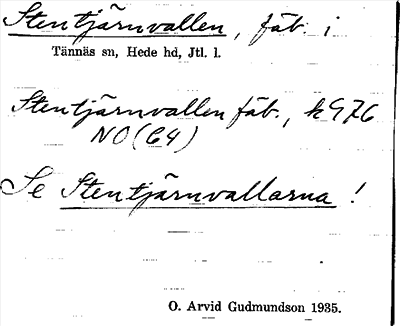 Stentjärnvallen, fäb. i
Tännäs sn, Hede hd, Jtl. l.
Stentjärnvallen fäb., k 976
NO (C4)
Se Stentjärnvallarna !
O. Arvid Gudmundson 1935.